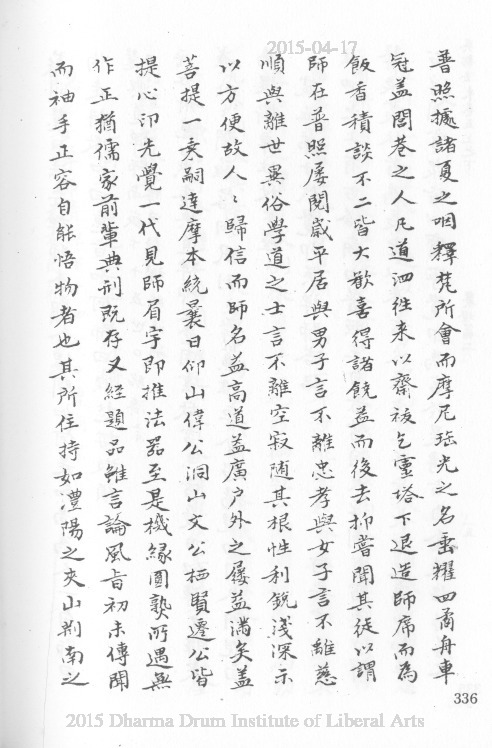 2015-04-17
普照據諸夏之咽釋梵所會而摩尼珎光之名垂耀四裔舟車
冠盖閭巷之人凡道泗往来以齋祓乞靈塔下退造師席而為
飯香積談不二皆大歡喜得諸饒益而後去抑嘗聞其徒以謂
師在普照屡閱歲平居與男子言不離忠孝與女子言不離慈
順與離世異俗學道之士言不離空寂随其根性利銳淺深示
以方便故人〻歸信而師名益高道益廣户外之屨益滿矣盖
菩提一衺嗣達摩本統曩日仰山偉公洞山文公栖賢遷公皆
提心印先覺一代見師眉宇即推法器至是機緣圓熟所遇無
作正猶儒家前輩典刑既存又經題品雖言論風旨初未傳聞
而袖手正容自能悟物者也其所住持如澧陽之夾山荆南之
336
2015 Dharma Drum Institute of Liberal Arts